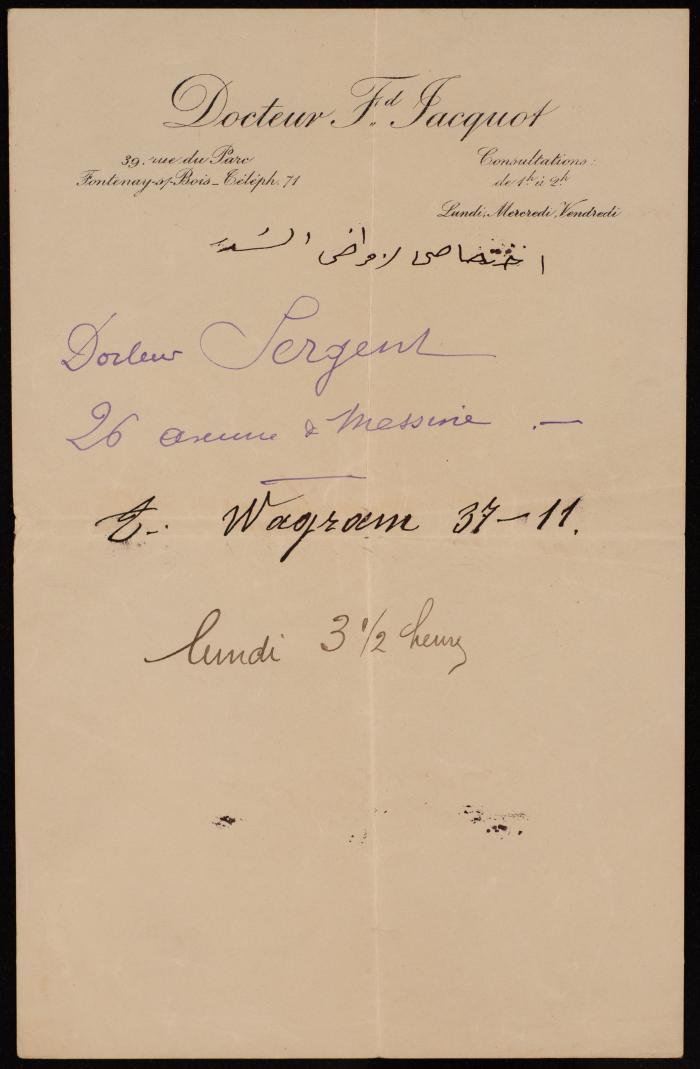 Docteur F.d Jacquot
39. rue du Parc
Fontenay-s/-Bois_Téléph. 71
Consultations:
de 1h à 2h
Lundi, Mercredi, Vendredi
اختصاصي لامراض الصدر
Docteur Sergent
26 avenue de Messine . —
T. Wagram 37-11.
lundi 3 1/2 heures